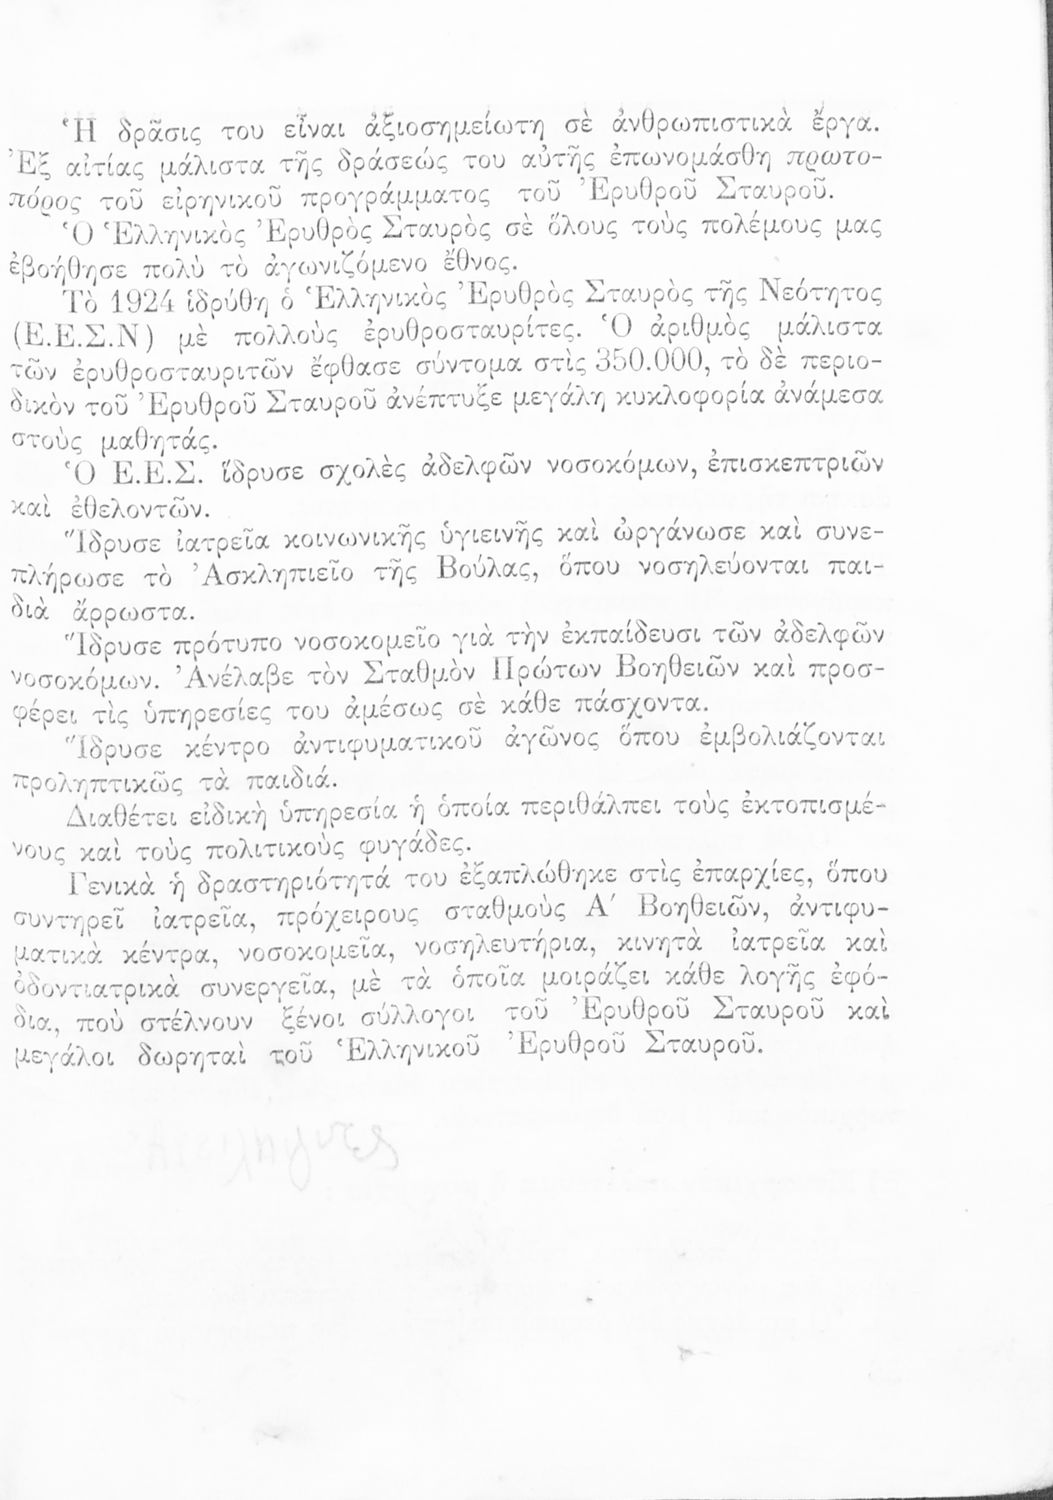 Ἡ δρᾶσις του εἶναι ἀξιοσημείωτη σὲ ἀνθρωπιστικὰ ἔργα.
Ἐξ αἰτίας μάλιστα τῆς δράσεώς του αὐτῆς ἐπωνομάσθη πρωτο-
πόρος τοῦ εἰρηνικοῦ προγράμματος τοῦ Ἐρυθροῦ Σταυροῦ.
Ὁ Ἑλληνικὸς Ἐρυθρὸς Σταυρὸς σὲ ὅλους τοὺς πολέμους μας
ἐβοήθησε πολὺ τὸ ἀγωνιζόμενο ἔθνος.
Τὸ 1924 ἱδρύθη ὁ Ἑλληνικὸς Ἐρυθρὸς Σταυρὸς τῆς Νεότητος
(Ε.Ε.Σ.Ν) μὲ πολλοὺς ἐρυθροσταυρίτες. Ὁ ἀριθμὸς μάλιστα
τῶν ἐρυθροσταυριτῶν ἔφθασε σύντομα στὶς 350.000, τὸ δὲ περιο-
δικὸν τοῦ Ἐρυθροῦ Σταυροῦ ἀνέπτυξε μεγάλη κυκλοφορία ἀνάμεσα
στοὺς μαθητάς.
Ὁ Ε.Ε.Σ. ἵδρυσε σχολὲς ἀδελφῶν νοσοκόμων, ἐπισκεπτριῶν
καὶ ἐθελοντῶν.
Ἵδρυσε ἰατρεῖα κοινωνικῆς ὑγιεινῆς καὶ ὠργάνωσε καὶ συνε-
πλήρωσε τὸ Ἀσκληπιεῖο τῆς Βούλας, ὅπου νοσηλεύονται παι-
διὰ ἄρρωστα.
Ἵδρυσε πρότυπο νοσοκομεῖο γιὰ τὴν ἐκπαίδευσι τῶν ἀδελφῶν
νοσοκόμων. Ἀνέλαβε τὸν Σταθμὸν Πρώτων Βοηθειῶν καὶ προσ-
φέρει τὶς ὑπηρεσίες του ἀμέσως σὲ κάθε πάσχοντα.
Ἵδρυσε κέντρο ἀντιφυματικοῦ ἀγῶνος ὅπου ἐμβολιάζονται
προληπτικῶς τὰ παιδιά.
Διαθέτει εἰδικὴ ὑπηρεσία ἡ ὁποία περιθάλπει τοὺς ἐκτοπισμέ-
νους καὶ τοὺς πολιτικοὺς φυγάδες.
Γενικὰ ἡ δραστηριότητά του ἐξαπλώθηκε στὶς ἐπαρχίες, ὅπου
συντηρεῖ ἰατρεῖα, πρόχειρους σταθμοὺς Α′ Βοηθειῶν, ἀντιφυ-
ματικὰ κέντρα, νοσοκομεῖα, νοσηλευτήρια, κινητὰ ἰατρεῖα καὶ
ὀδοντιατρικὰ συνεργεῖα, μὲ τὰ ὁποῖα μοιράζει κάθε λογῆς ἐφό-
δια, ποὺ στέλνουν ξένοι σύλλογοι τοῦ Ἐρυθροῦ Σταυροῦ καὶ
μεγάλοι δωρηταὶ τοῦ Ἑλληνικοῦ Ἐρυθροῦ Σταυροῦ.